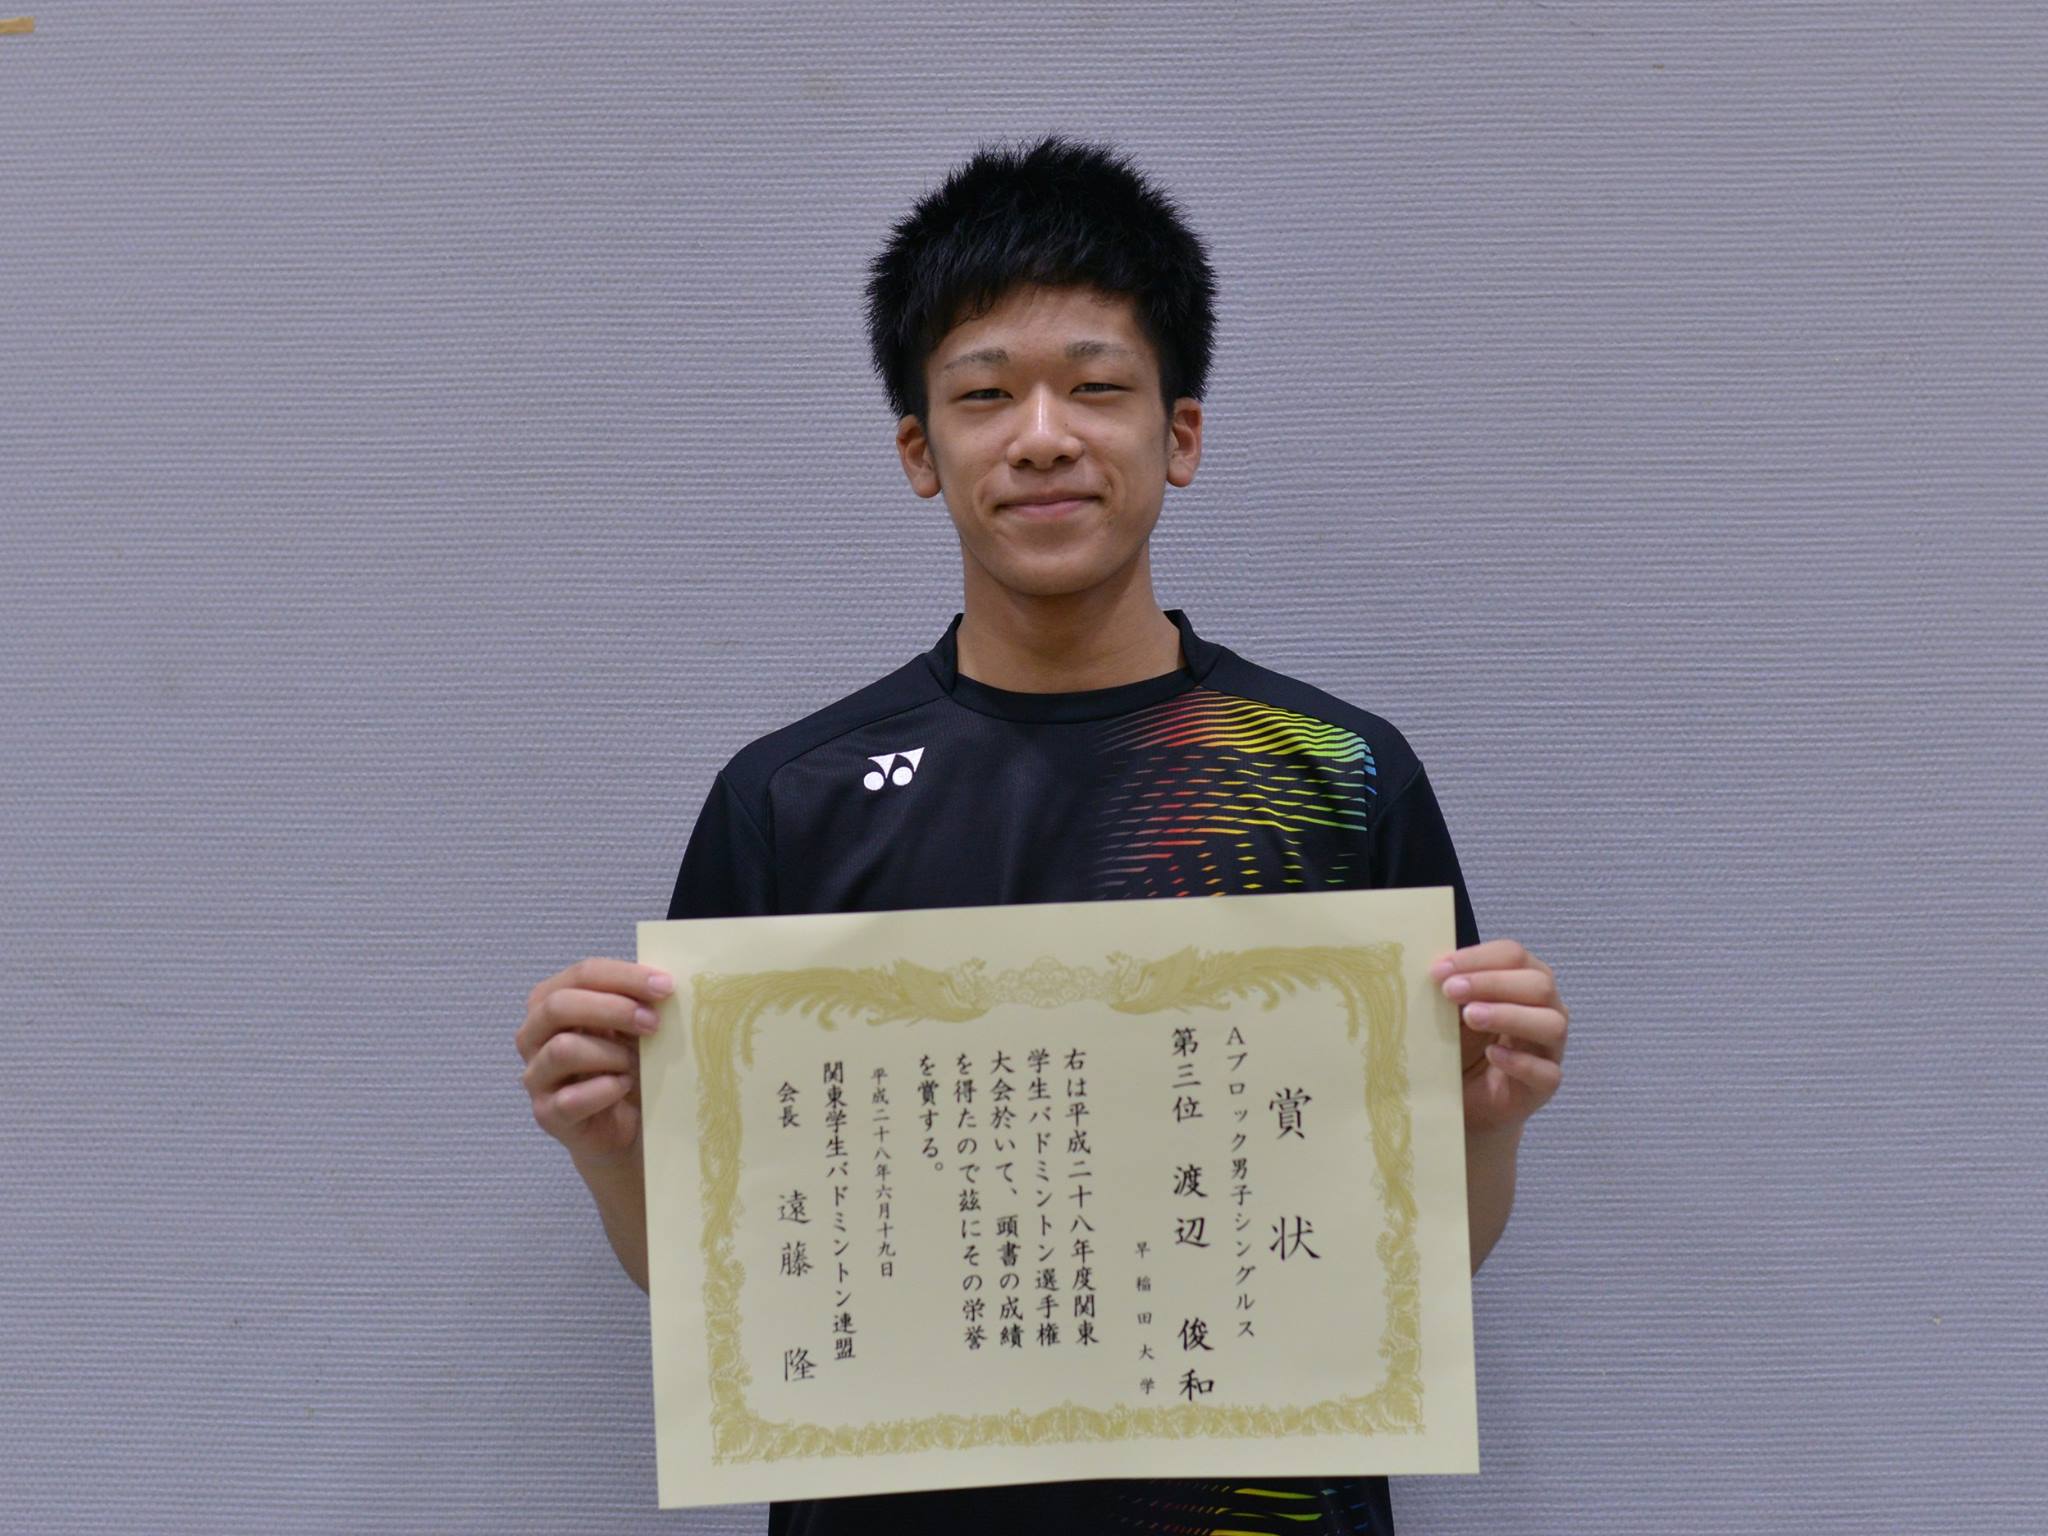 賞状
Aブロック男子シングルス
第三位 渡辺 俊和
早稲田大学
右は平成二十八年度関東
学生バドミントン選手権
大会於いて、頭書の成績
を得たので茲にその栄誉
を賞する。
平成二十八年六月十九日
関東学生バドミントン連盟
会長 遠藤 隆